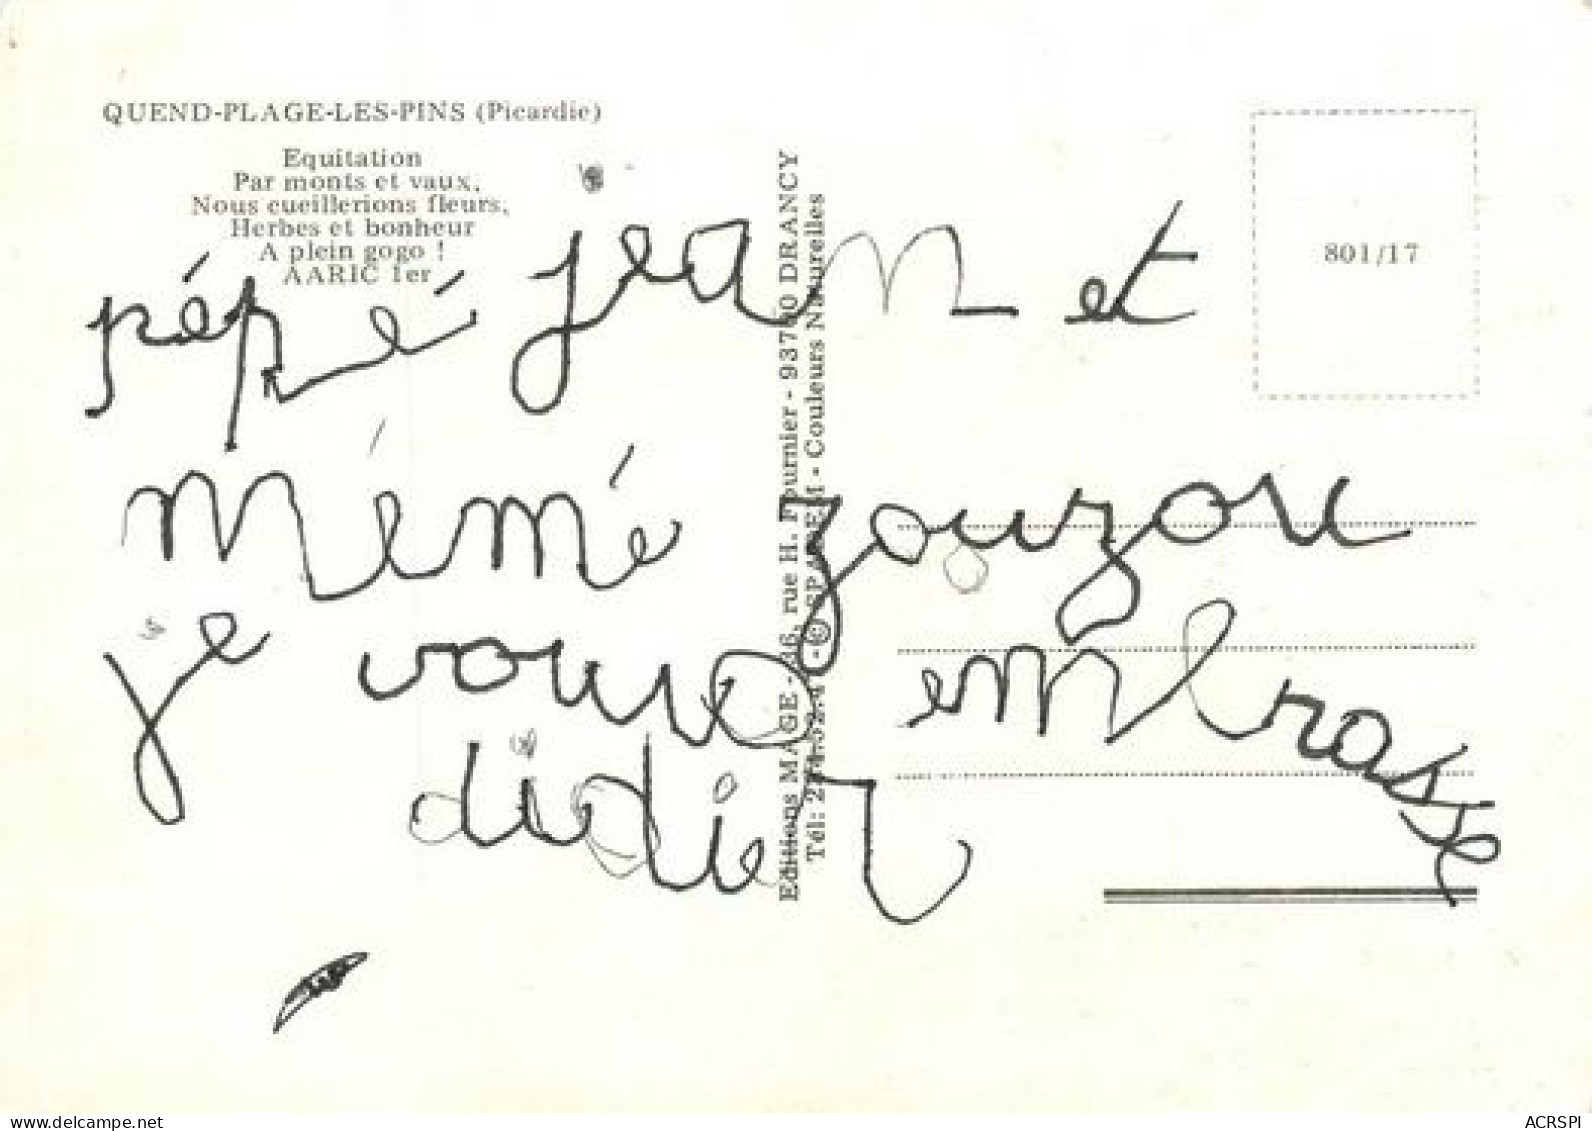 QUEND-PLAGE-LES-PINS (Picardie)
Equitation
Par monts et vaux,
Nous cueillerions fleurs,
Herbes et bonheur
A plein gogo !
AARIC 1er
801/17
pépé jean et
mémé zouzou
je vous embrasse
didier
Editions MAGE - rue H. Fournier - 93700 DRANCY
Tél: - © SPADEM - Couleurs Naturelles
www.delcampe.net
ACRSPI